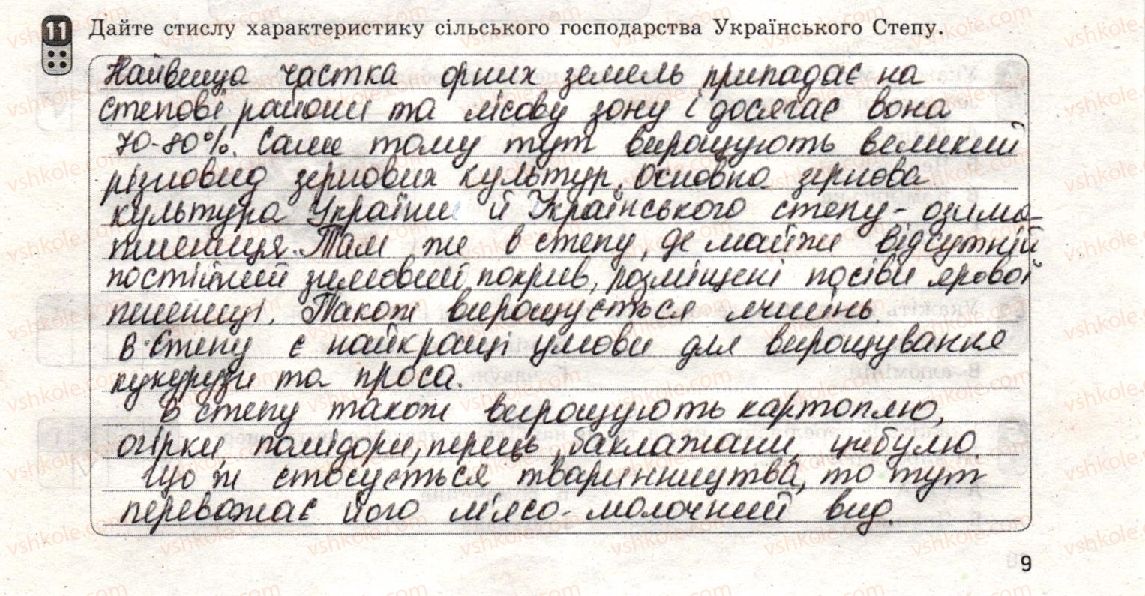 11 Дайте стислу характеристику сільського господарства Українського Степу.
Найвища частка орних земель припадає на
степові райони та лісову зону і досягає вона
70-80%. Саме тому тут вирощують великий
різновид зернових культур. Основна зернова
культура України й Українського степу - озима
пшениця. Там же в степу, де майже відсутній
постійний зимовий покрив, розміщені посіви ярової
пшениці. Також вирощується ячмінь.
В степу є найкращі умови для вирощування
кукурузи та проса.
В степу також вирощують картоплю,
огірки помідори, перець, баклажани, цибулю.
Що ж стосується тваринництва, то тут
переважає його м'ясо-молочний вид.
9